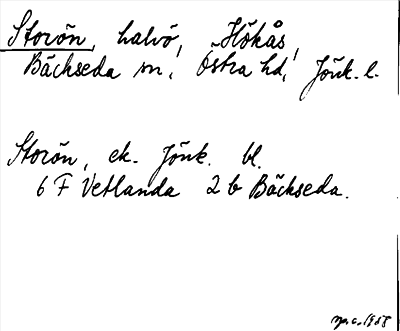 Storön, halvö, Hökås,
Bäckseda sn, Östra hd, Jönk. l.
Storön, ek. Jönk. bl.
6 F Vetlanda 2 b Bäckseda.
1958